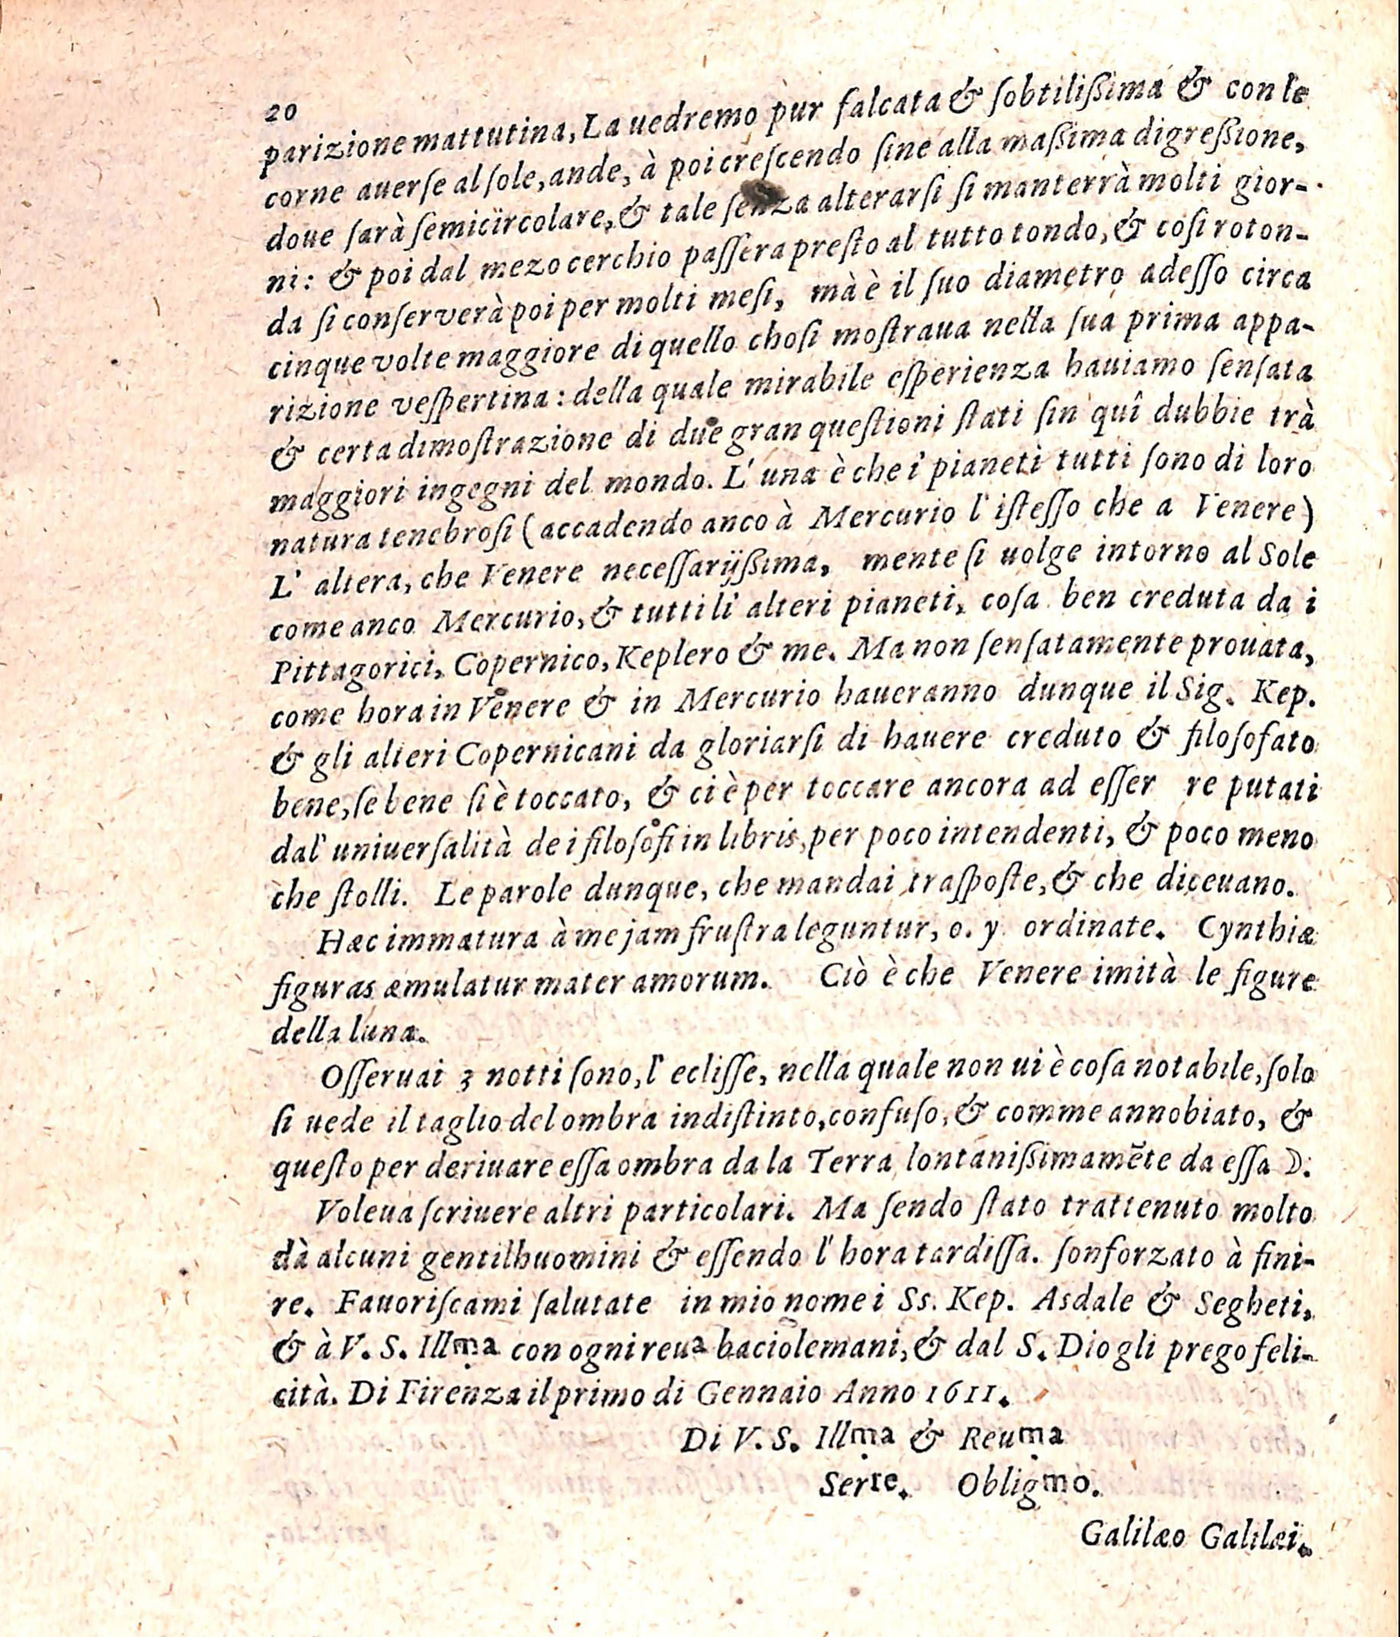 20
parizione mattutina, La uedremo pur falcata & ſobtiliſsima & con le
corne auerſe al ſole, ande, à poi creſcendo ſine alla maſsima digreſsione,
doue ſarà ſemicircolare, & tale ſenza alterarſi ſi manterrà molti gior-
ni: & poi dal mezo cerchio paſſera preſto al tutto tondo, & coſi roton-
da ſi conſerverà poi per molti meſi, mà è il ſuo diametro adeſſo circa
cinque volte maggiore di quello choſi moſtraua nella ſua prima appa-
rizione veſpertina: della quale mirabile eſperienza hauiamo ſenſata
& certa dimoſtrazione di due gran queſtioni ſtati ſin quî dubbie trà
maggiori ingegni del mondo. L' una è che i' pianeti tutti ſono di loro
natura tenebroſi (accadendo anco à Mercurio l' iſteſſo che a Venere)
L' altera, che Venere neceſſarijſsima, mente ſi uolge intorno al Sole
come anco Mercurio, & tutti li' alteri pianeti, coſa ben creduta da i
Pittagorici, Copernico, Keplero & me. Ma non ſenſatamente prouata,
come hora in Venere & in Mercurio haueranno dunque il Sig. Kep.
& gli alteri Copernicani da gloriarſi di hauere creduto & filoſofato
bene, ſe bene ſi è toccato, & ci è per toccare ancora ad eſſer re putati
dal' uniuerſalità de i filoſofi in libris, per poco intendenti, & poco meno
che ſtolli. Le parole dunque, che mandai traſpoſte, & che diceuano.
Hæc immatura à me jam fruſtra leguntur, o. y ordinate. Cynthiæ
figuras æmulatur mater amorum. Ciò è che Venere imità le figure
della luna.
Oſſeruai 3 notti ſono, l' ecliſſe, nella quale non ui è coſa notabile, ſolo
ſi uede il taglio del ombra indiſtinto, confuſo, & comme annobiato, &
queſto per deriuare eſſa ombra da la Terra lontaniſsimamẽte da eſſa ☽.
Voleua ſcriuere altri particolari. Ma ſendo ſtato trattenuto molto
dà alcuni gentilhuomini & eſſendo l' hora tardiſſa. ſonforzato à fini-
re. Fauoriſcami ſalutate in mio nome i Ss. Kep. Asdale & Segheti,
& à V. S. Illma con ogni reua baciolemani, & dal S. Dio gli prego feli-
cità. Di Firenza il primo di Gennaio Anno 1611.
Di V. S. Illma & Reuma
Serre. Obligmo.
Galilæo Galilæi.